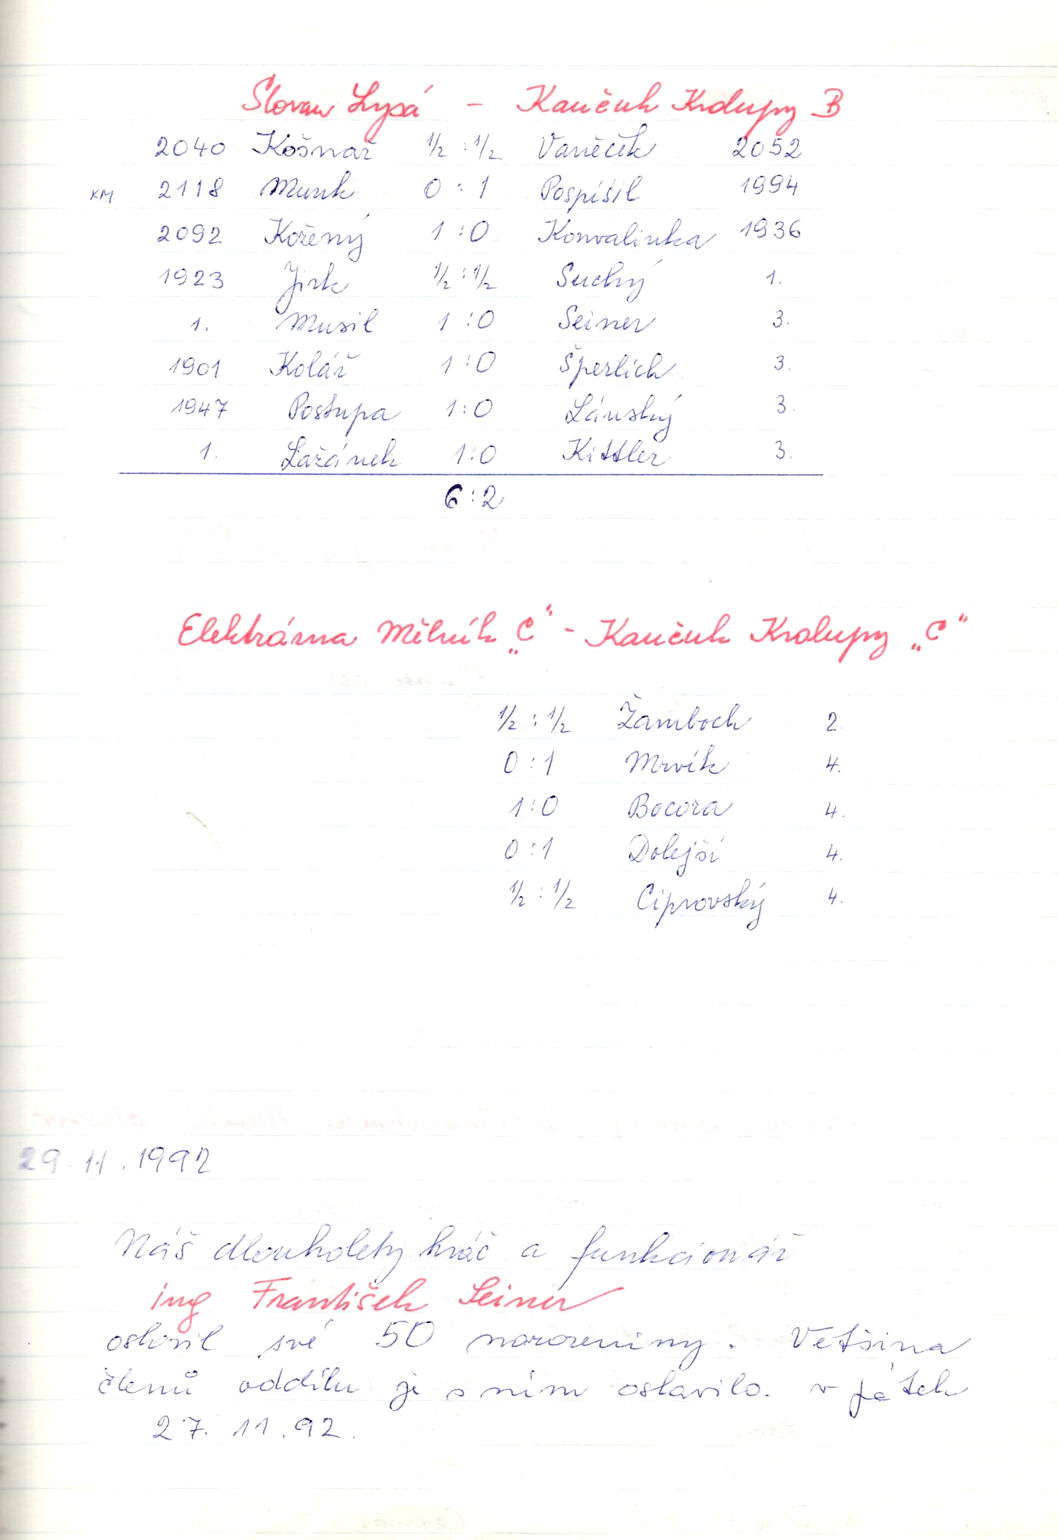 Slovan Lysá - Kaučuk Kralupy B
2040 Košnař ½ : ½ Vaněček 2052
KM 2118 Munk 0 : 1 Pospíšil 1994
2092 Kořený 1 : 0 Konvalinka 1936
1923 Jirk ½ : ½ Suchý 1.
1. Musil 1 : 0 Seiner 3.
1901 Kolář 1 : 0 Šperlich 3.
1947 Postupa 1 : 0 Lánský 3.
1. Lažánek 1 : 0 Kittler 3.
6 : 2
Elektrárna Mělník „C“ - Kaučuk Kralupy „C“
½ : ½ Žamboch 2
0 : 1 Mrvík 4.
1 : 0 Bocora 4.
0 : 1 Dolejší 4.
½ : ½ Ciprovský 4.
29. 11. 1992
Náš dlouholetý hráč a funkcionář
ing František Seiner
oslavil své 50 narozeniny. Většina
členů oddílu je s ním oslavila. v pátek
27. 11. 92.